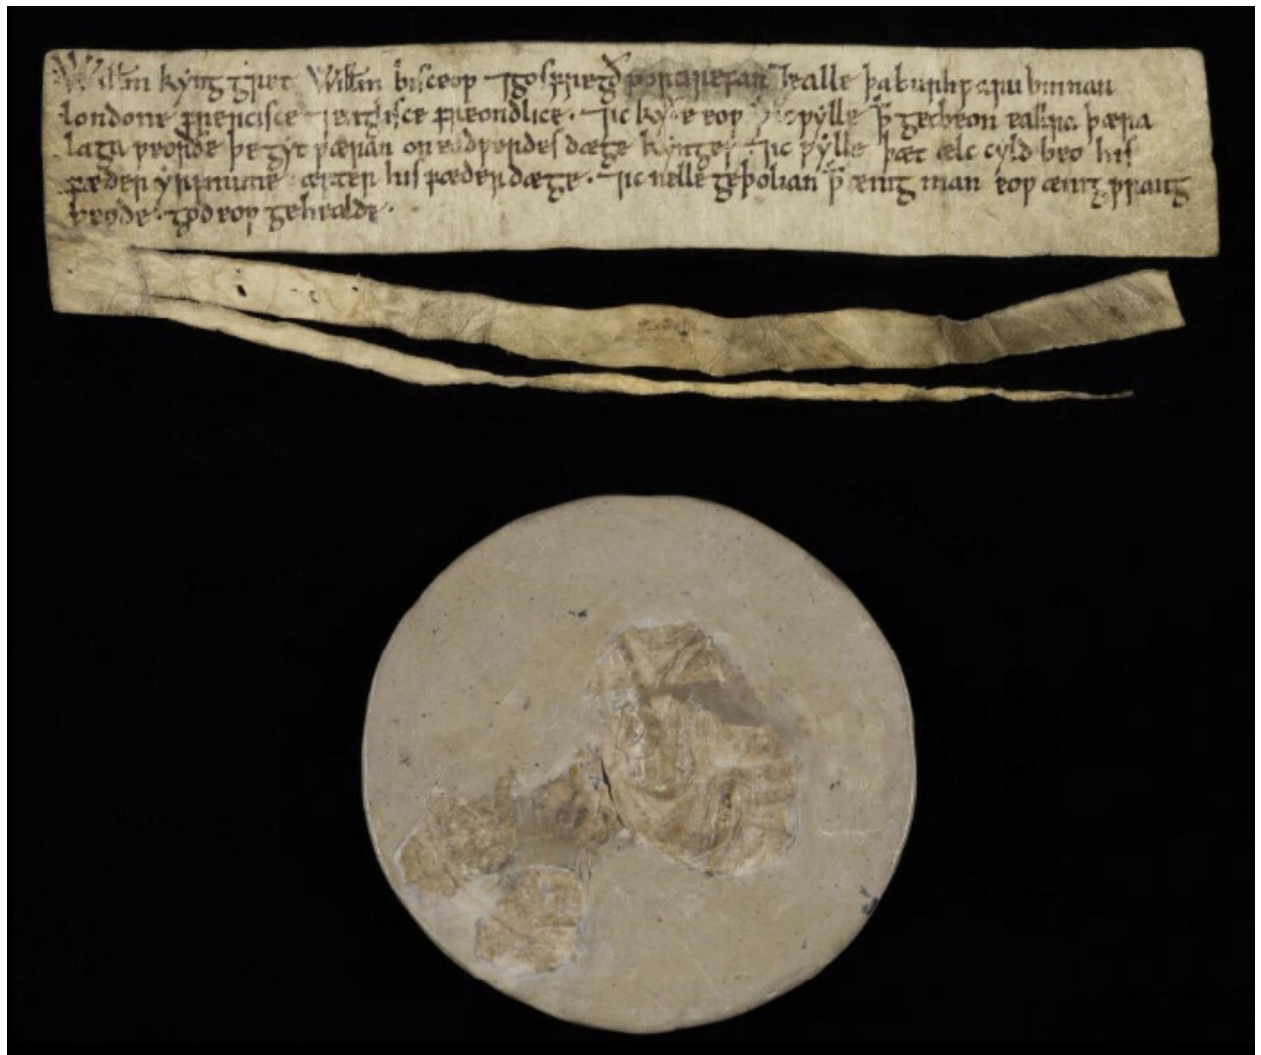 Willm kyng gret Willm bisceop ⁊ gosfregð portirefan ⁊ ealle þa burhƿaru binnan
londone frencisce ⁊ englisce freondlice · ⁊ ic kyðe eoƿ ꝥ ic ƿylle ꝥ get beon eallra þæra
laga ƿeorðe þe gyt ƿæran on eadƿerdes dæge kynges · ⁊ ic ƿylle þæt ælc cyld beo his
fæder yrfnume æfter his fæder dæge · ⁊ ic nelle geþolian ꝥ ænig man eoƿ ænig ƿrang
beode · god eoƿ gehealde ·